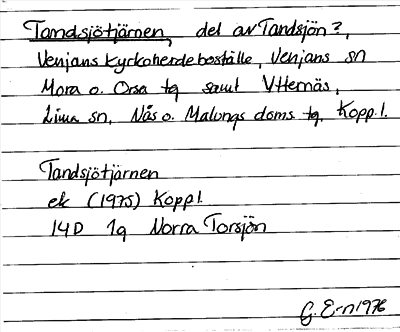 Tandsjötjärnen, del av Tandsjön?,
Venjans kyrkoherdeboställe, Venjans sn
Mora o. Orsa tg samt V Hernäs,
Lima sn, Nås o. Malungs doms. tg. Kopp. l.
Tandsjötjärnen
ek (1975) Kopp l.
14D 1g Norra Torsjön
G. E-n 1976